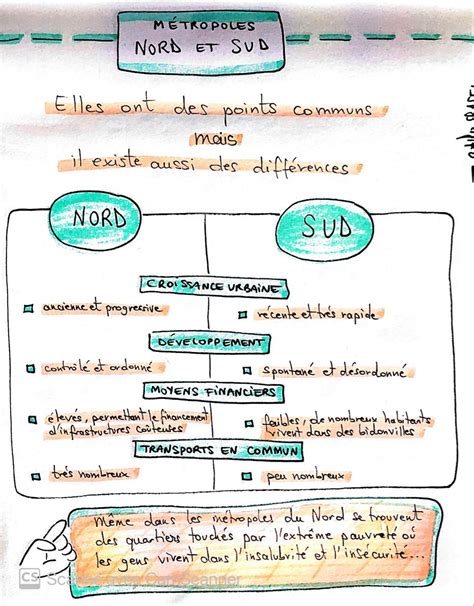 MÉTROPOLES
NORD ET SUD
Elles ont des points communs
mais
il existe aussi des différences
NORD
SUD
CROISSANCE URBAINE
ancienne et progressive
récente et très rapide
DÉVELOPPEMENT
contrôlé et ordonné
spontané et désordonné
MOYENS FINANCIERS
élevés, permettant le financement
d'infrastructures coûteuses
faibles, de nombreux habitants
vivent dans des bidonvilles
TRANSPORTS EN COMMUN
très nombreux
peu nombreux
Même dans les métropoles du Nord se trouvent
des quartiers touchés par l'extrême pauvreté où
les gens vivent dans l'insalubrité et l'insécurité...
CS